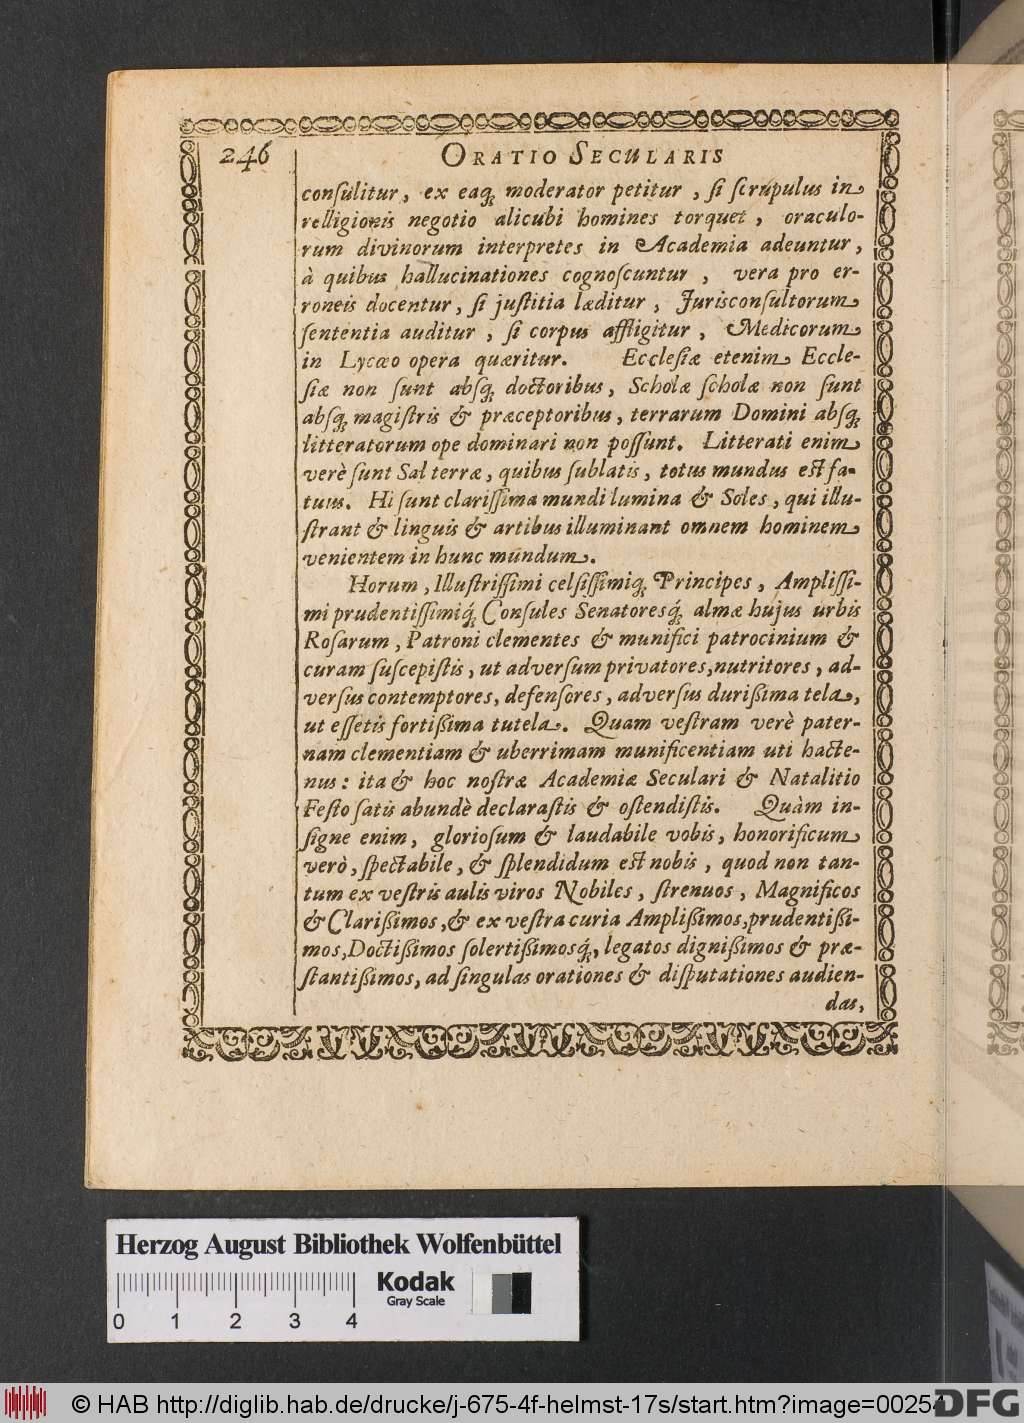 246
ORATIO SECULARIS
conſulitur, ex eaq́ꝫ moderator petitur, ſi ſcrupulus in
relligionis negotio alicubi homines torquet, oraculo-
rum divinorum interpretes in Academia adeuntur,
à quibus hallucinationes cognoſcuntur, vera pro er-
roneis docentur, ſi juſtitia læditur, Jurisconſultorum
ſententia auditur, ſi corpus affligitur, Medicorum
in Lycœo opera quæritur. Eccleſiæ etenim Eccle-
ſiæ non ſunt abſqꝫ doctoribus, Scholæ ſcholæ non ſunt
abſqꝫ magiſtris & præceptoribus, terrarum Domini abſqꝫ
litteratorum ope dominari non poſſunt. Litterati enim
verè ſunt Sal terræ, quibus ſublatis, totus mundus eſt fa-
tuus. Hi ſunt clariſſima mundi lumina & Soles, qui illu-
ſtrant & linguis & artibus illuminant omnem hominem
venientem in hunc mundum.
Horum, Illuſtriſſimi celſiſſimiq́ꝫ Principes, Ampliſſi-
mi prudentiſſimiq́ꝫ Conſules Senatoresq́ꝫ almæ hujus urbis
Roſarum, Patroni clementes & munifici patrocinium &
curam ſuſcepiſtis, ut adverſum privatores, nutritores, ad-
verſus contemptores, defenſores, adverſus durißima tela,
ut eſſetis fortißima tutela. Quam veſtram verè pater-
nam clementiam & uberrimam munificentiam uti hacte-
nus: ita & hoc noſtræ Academiæ Seculari & Natalitio
Feſto ſatis abundè declaraſtis & oſtendiſtis. Quàm in-
ſigne enim, glorioſum & laudabile vobis, honorificum
verò, ſpectabile, & ſplendidum eſt nobis, quod non tan-
tum ex veſtris aulis viros Nobiles, ſtrenuos, Magnificos
& Clarißimos, & ex veſtra curia Amplißimos, prudentißi-
mos, Doctißimos ſolertißimosq́ꝫ, legatos dignißimos & præ-
ſtantißimos, ad ſingulas orationes & diſputationes audien-
das,
Herzog August Bibliothek Wolfenbüttel
Kodak
Gray Scale
0 1 2 3 4
© HAB http://diglib.hab.de/drucke/j-675-4f-helmst-17s/start.htm?image=00254
DFG